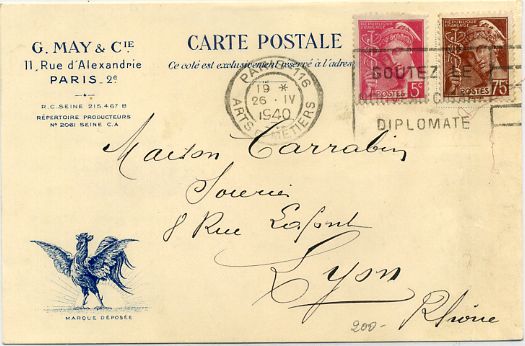 G. MAY & CIE
11, Rue d'Alexandrie
PARIS - 2e
R.C. SEINE 215.467 B
RÉPERTOIRE PRODUCTEURS
No 2061 SEINE C.A
CARTE POSTALE
Ce coté est exclusivement réservé à l'adresse
POSTES 5c
POSTES 75
PARIS 116
19 *
26 - IV
1940
ARTS MÉTIERS
GOUTEZ LE
DIPLOMATE
Maison Carrabin
Soieries
8 Rue Lafont
Lyon
Rhône
MARQUE DÉPOSÉE
200-